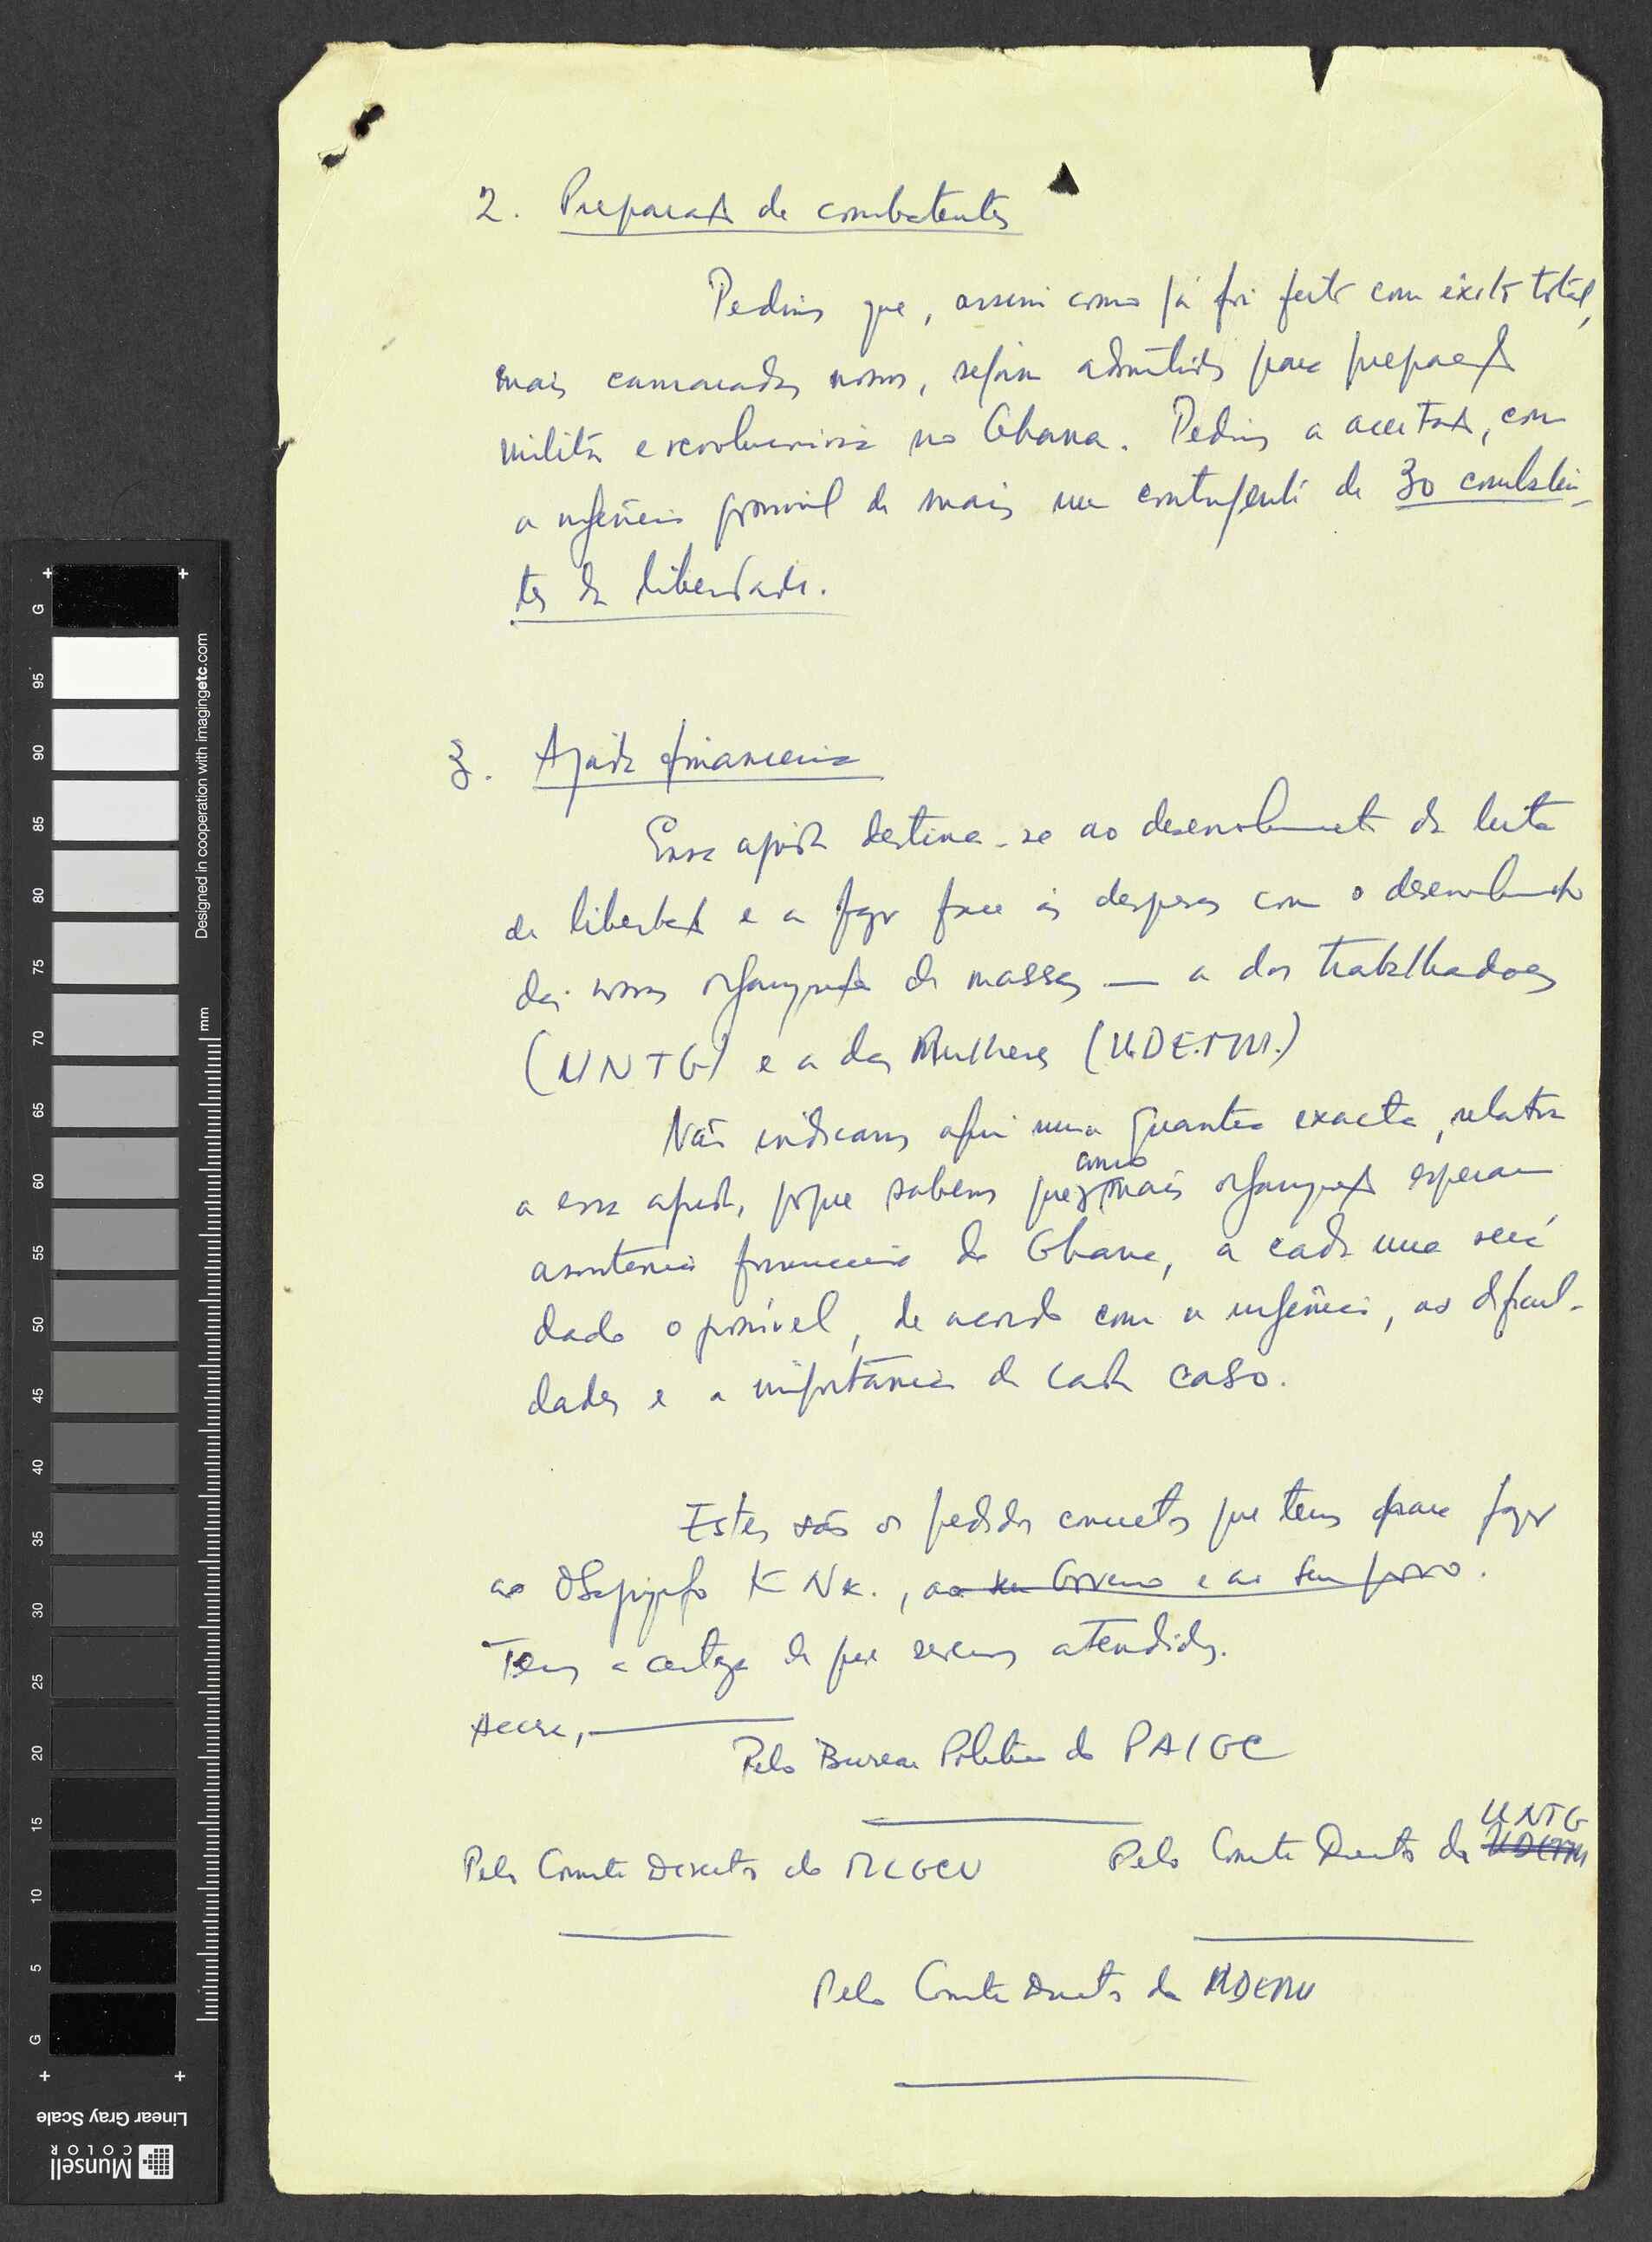 2. Preparação de combatentes
Pedimos que, assim como já foi feito com êxito total,
mais camaradas nossos, sejam admitidos para preparação
militar e revolucionária no Ghana. Pedimos a aceitação, com
a urgência possível de mais um contingente de 30 combaten-
tes da liberdade.
3. Ajuda financeira
Essa ajuda destina-se ao desenvolvimento da luta
de libertação e a fazer face às despesas com o desenvolvimento
das nossas organizações de massas — a dos trabalhadores
(UNTG) e a das Mulheres (UDEMU.)
Não indicamos aqui uma quantia exacta, relativa
a essa ajuda, porque sabemos que mais organizações esperam
assistência financeira do Ghana, a cada uma será
dado o possível, de acordo com a urgência, as dificul-
dades e a importância de cada caso.
Estes são os pedidos concretos que temos para fazer
ao Osagyefo K Nk., ao seu Governo e ao seu povo.
Temos a certeza de que seremos atendidos.
Accra,
Pelo Bureau Político do PAIGC
UNTG
Pelo Comité Director do MLGCV Pelo Comité Director da
Pelo Comité Director da UDEMU
Designed in cooperation with imagingetc.com
mm
G 95 90 85 80 75 70 65 60 55 50 45 40 35 30 25 20 15 10 5 G
Linear Gray Scale
Munsell
COLOR